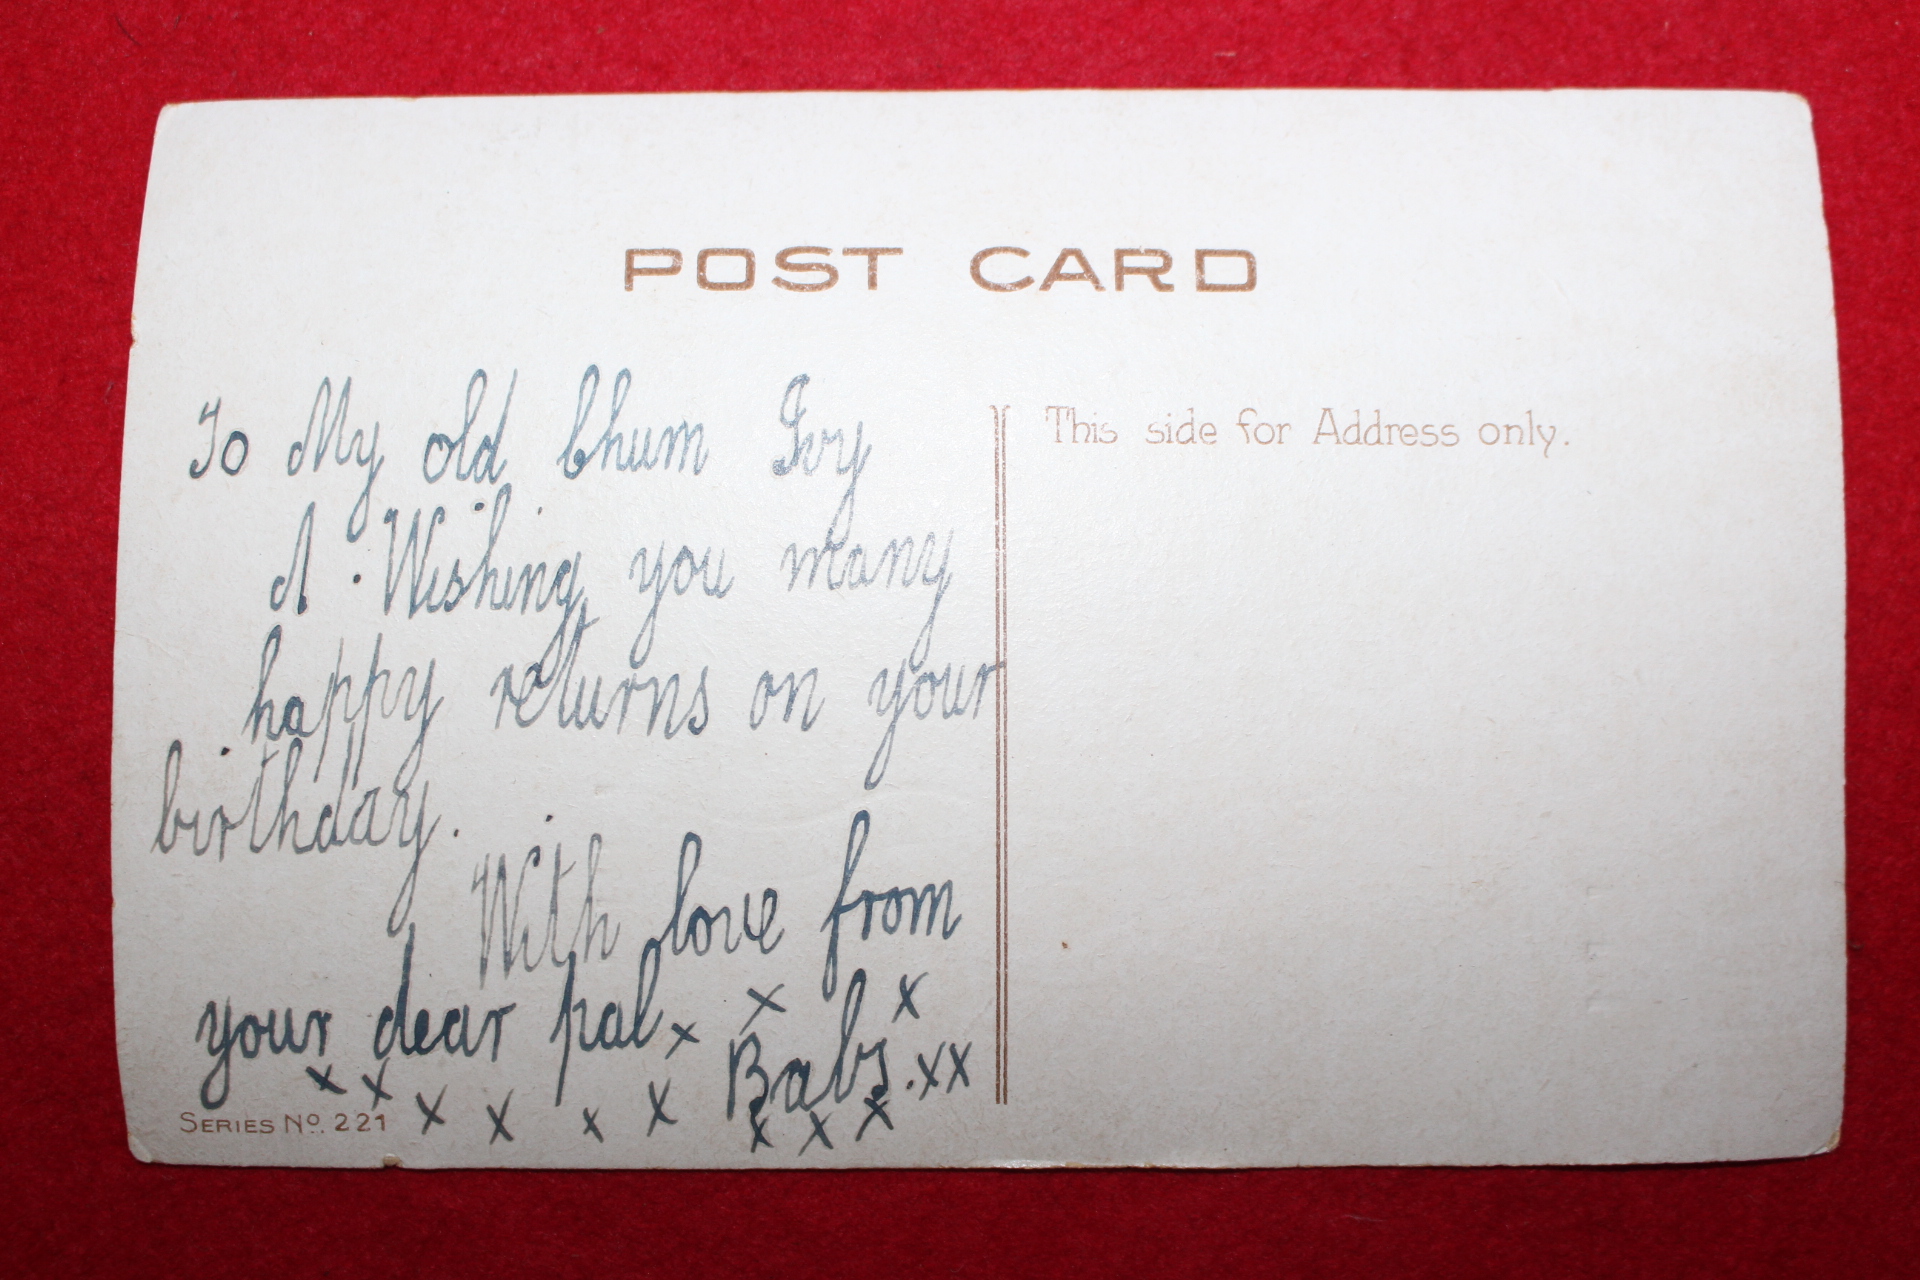 POST CARD
To My old Chum Ivy
A. Wishing you many
happy returns on your
birthday.
With love from
your dear pal. x x x
Babs. xx
x x x x x x x x x
SERIES No. 221
This side for Address only.